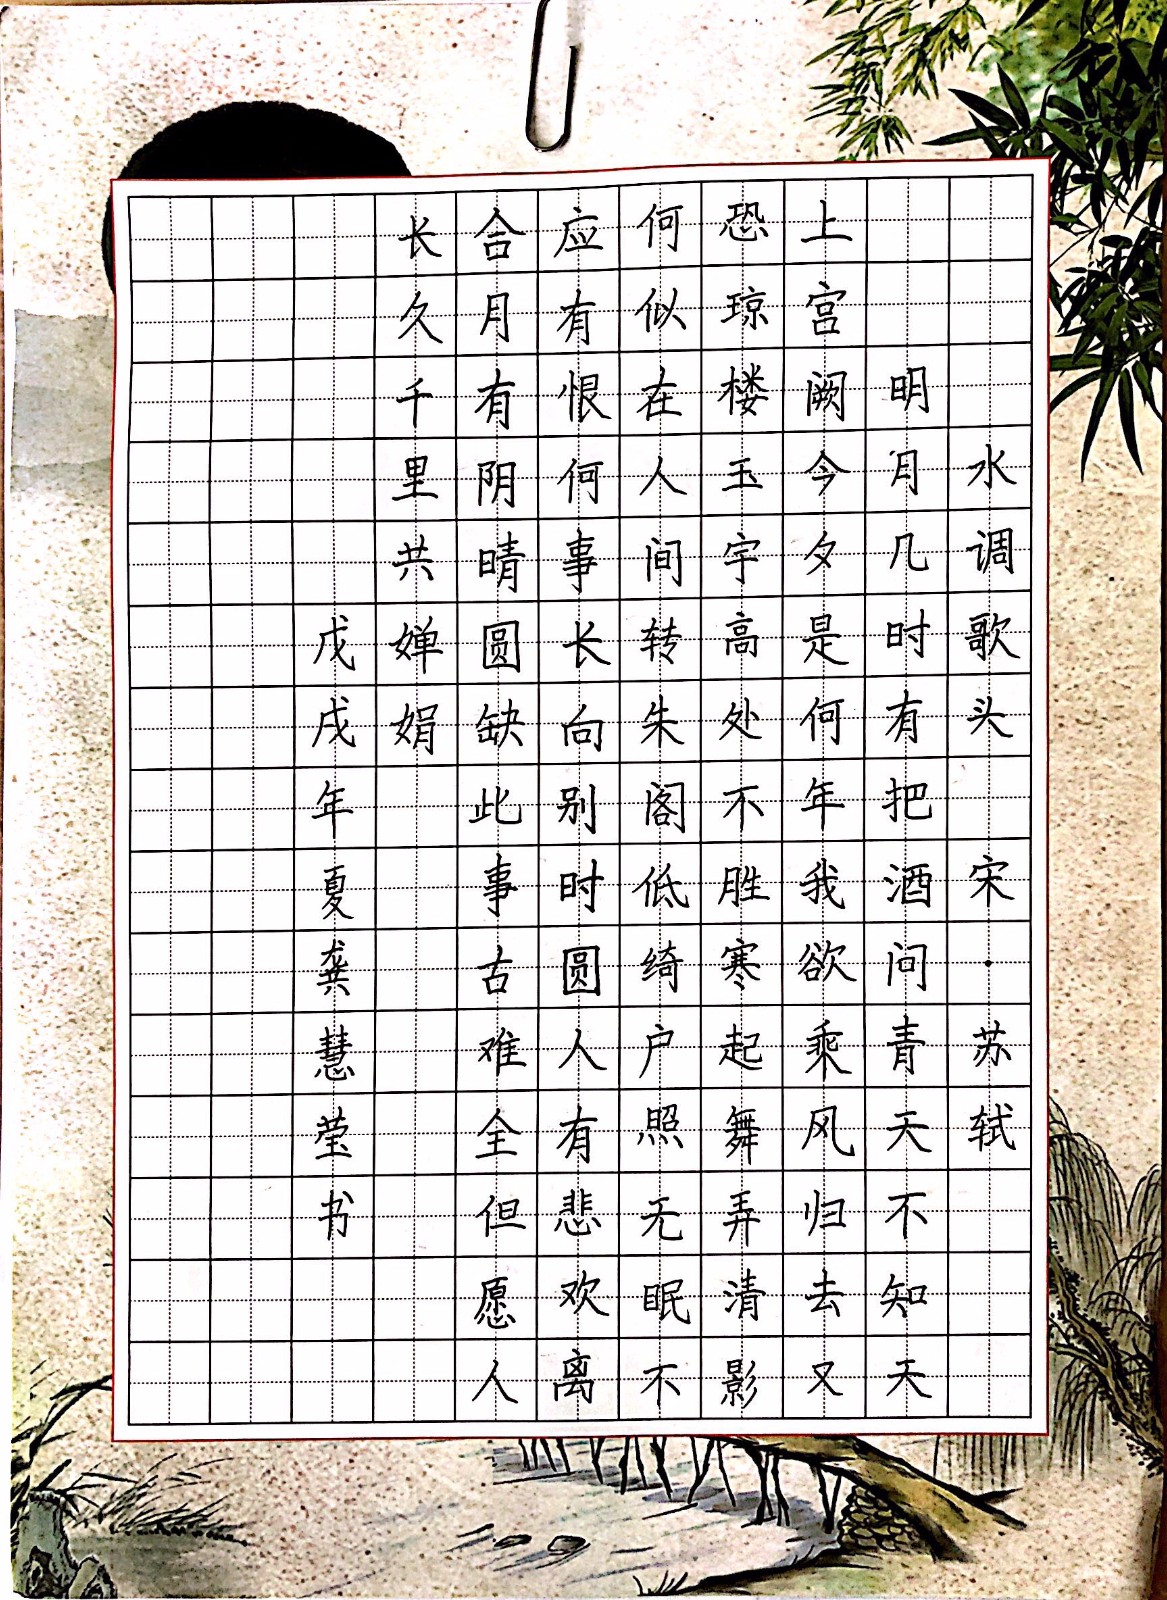 水调歌头 宋·苏轼
明月几时有把酒问青天不知天
上宫阙今夕是何年我欲乘风归去又
恐琼楼玉宇高处不胜寒起舞弄清影
何似在人间转朱阁低绮户照无眠不
应有恨何事长向别时圆人有悲欢离
合月有阴晴圆缺此事古难全但愿人
长久千里共婵娟
戊戌年夏龚慧莹书